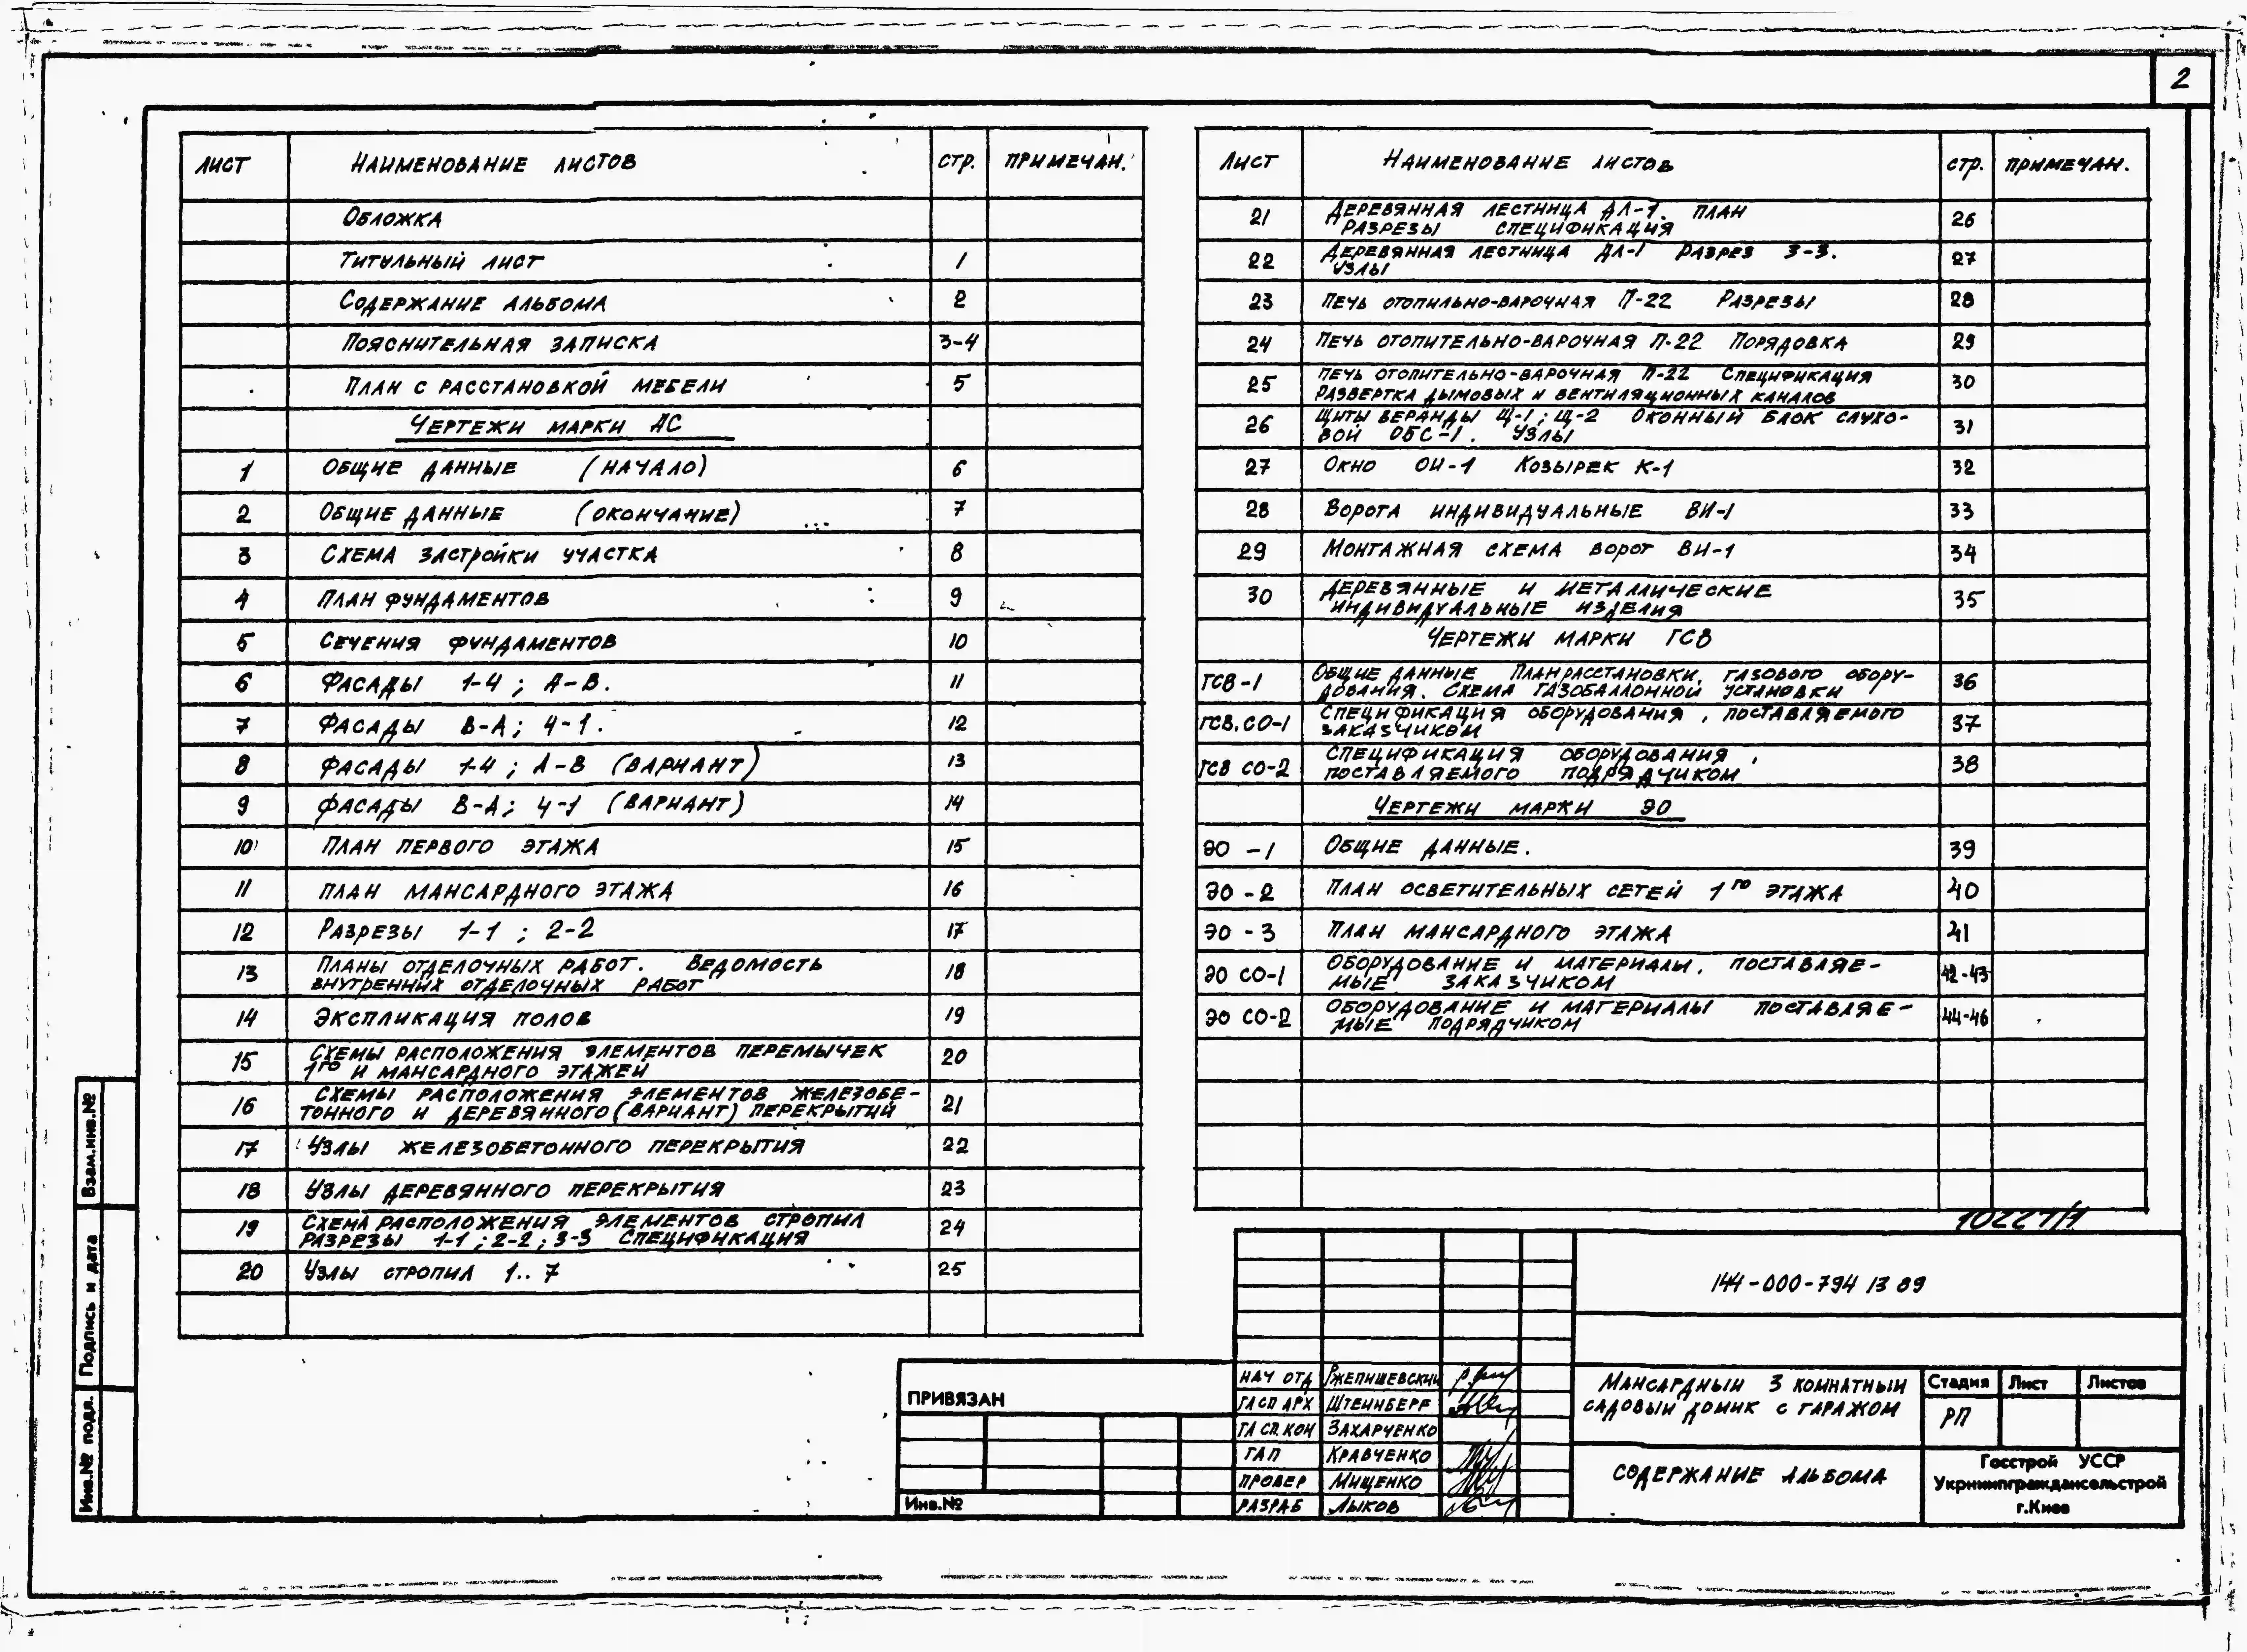 2
ЛИСТ НАИМЕНОВАНИЕ ЛИСТОВ СТР. ПРИМЕЧАН.
ОБЛОЖКА
ТИТУЛЬНЫЙ ЛИСТ 1
СОДЕРЖАНИЕ АЛЬБОМА 2
ПОЯСНИТЕЛЬНАЯ ЗАПИСКА 3-4
ПЛАН С РАССТАНОВКОЙ МЕБЕЛИ 5
ЧЕРТЕЖИ МАРКИ АС
1 ОБЩИЕ ДАННЫЕ (НАЧАЛО) 6
2 ОБЩИЕ ДАННЫЕ (ОКОНЧАНИЕ) 7
3 СХЕМА ЗАСТРОЙКИ УЧАСТКА 8
4 ПЛАН ФУНДАМЕНТОВ 9
5 СЕЧЕНИЯ ФУНДАМЕНТОВ 10
6 ФАСАДЫ 1-4 ; А-В. 11
7 ФАСАДЫ В-А; 4-1. 12
8 ФАСАДЫ 1-4 ; А-В (ВАРИАНТ) 13
9 ФАСАДЫ В-А; 4-1 (ВАРИАНТ) 14
10 ПЛАН ПЕРВОГО ЭТАЖА 15
11 ПЛАН МАНСАРДНОГО ЭТАЖА 16
12 РАЗРЕЗЫ 1-1 ; 2-2 17
13 ПЛАНЫ ОТДЕЛОЧНЫХ РАБОТ. ВЕДОМОСТЬ
ВНУТРЕННИХ ОТДЕЛОЧНЫХ РАБОТ 18
14 ЭКСПЛИКАЦИЯ ПОЛОВ 19
15 СХЕМЫ РАСПОЛОЖЕНИЯ ЭЛЕМЕНТОВ ПЕРЕМЫЧЕК
1ГО И МАНСАРДНОГО ЭТАЖЕЙ 20
16 СХЕМЫ РАСПОЛОЖЕНИЯ ЭЛЕМЕНТОВ ЖЕЛЕЗОБЕ-
ТОННОГО И ДЕРЕВЯННОГО (ВАРИАНТ) ПЕРЕКРЫТИЙ 21
17 УЗЛЫ ЖЕЛЕЗОБЕТОННОГО ПЕРЕКРЫТИЯ 22
18 УЗЛЫ ДЕРЕВЯННОГО ПЕРЕКРЫТИЯ 23
19 СХЕМА РАСПОЛОЖЕНИЯ ЭЛЕМЕНТОВ СТРОПИЛ
РАЗРЕЗЫ 1-1 ; 2-2 ; 3-3 СПЕЦИФИКАЦИЯ 24
20 УЗЛЫ СТРОПИЛ 1..7 25
ЛИСТ НАИМЕНОВАНИЕ ЛИСТОВ СТР. ПРИМЕЧАН.
21 ДЕРЕВЯННАЯ ЛЕСТНИЦА ДЛ-1. ПЛАН
РАЗРЕЗЫ СПЕЦИФИКАЦИЯ 26
22 ДЕРЕВЯННАЯ ЛЕСТНИЦА ДЛ-1 РАЗРЕЗ 3-3.
УЗЛЫ 27
23 ПЕЧЬ ОТОПИЛЬНО-ВАРОЧНАЯ П-22 РАЗРЕЗЫ 28
24 ПЕЧЬ ОТОПИТЕЛЬНО-ВАРОЧНАЯ П-22 ПОРЯДОВКА 29
25 ПЕЧЬ ОТОПИТЕЛЬНО-ВАРОЧНАЯ П-22 СПЕЦИФИКАЦИЯ
РАЗВЕРТКА ДЫМОВЫХ И ВЕНТИЛЯЦИОННЫХ КАНАЛОВ 30
26 ЩИТЫ ВЕРАНДЫ Щ-1 ; Щ-2 ОКОННЫЙ БЛОК СЛУХО-
ВОЙ ОБС-1. УЗЛЫ 31
27 ОКНО ОИ-1 КОЗЫРЕК К-1 32
28 ВОРОТА ИНДИВИДУАЛЬНЫЕ ВИ-1 33
29 МОНТАЖНАЯ СХЕМА ВОРОТ ВИ-1 34
30 ДЕРЕВЯННЫЕ И МЕТАЛЛИЧЕСКИЕ
ИНДИВИДУАЛЬНЫЕ ИЗДЕЛИЯ 35
ЧЕРТЕЖИ МАРКИ ГСВ
ГСВ-1 ОБЩИЕ ДАННЫЕ ПЛАН РАССТАНОВКИ, ГАЗОВОГО ОБОРУ-
ДОВАНИЯ. СХЕМА ГАЗОБАЛЛОННОЙ УСТАНОВКИ 36
ГСВ.СО-1 СПЕЦИФИКАЦИЯ ОБОРУДОВАНИЯ, ПОСТАВЛЯЕМОГО
ЗАКАЗЧИКОМ 37
ГСВ СО-2 СПЕЦИФИКАЦИЯ ОБОРУДОВАНИЯ,
ПОСТАВЛЯЕМОГО ПОДРЯДЧИКОМ 38
ЧЕРТЕЖИ МАРКИ ЭО
ЭО -1 ОБЩИЕ ДАННЫЕ. 39
ЭО -2 ПЛАН ОСВЕТИТЕЛЬНЫХ СЕТЕЙ 1ГО ЭТАЖА 40
ЭО -3 ПЛАН МАНСАРДНОГО ЭТАЖА 41
ЭО СО-1 ОБОРУДОВАНИЕ И МАТЕРИАЛЫ, ПОСТАВЛЯЕ-
МЫЕ ЗАКАЗЧИКОМ 42-43
ЭО СО-2 ОБОРУДОВАНИЕ И МАТЕРИАЛЫ ПОСТАВЛЯЕ-
МЫЕ ПОДРЯДЧИКОМ 44-46
10227/1
144-000-794 13 89
НАЧ ОТД РЖЕПИШЕВСКИЙ
ГЛ СП АРХ ШТЕЙНБЕРГ
ГЛ СП. КОН ЗАХАРЧЕНКО
ГАП КРАВЧЕНКО
ПРОВЕР МИЩЕНКО
РАЗРАБ ЛЫКОВ
МАНСАРДНЫЙ 3 КОМНАТНЫЙ
САДОВЫЙ ДОМИК С ГАРАЖОМ
СОДЕРЖАНИЕ АЛЬБОМА
Стадия Лист Листов
РП
Госстрой УССР
Укрнипграждансельстрой
г.Киев
ПРИВЯЗАН
Инв.№
Взам.инв.№
Подпись и дата
Инв.№ подл.